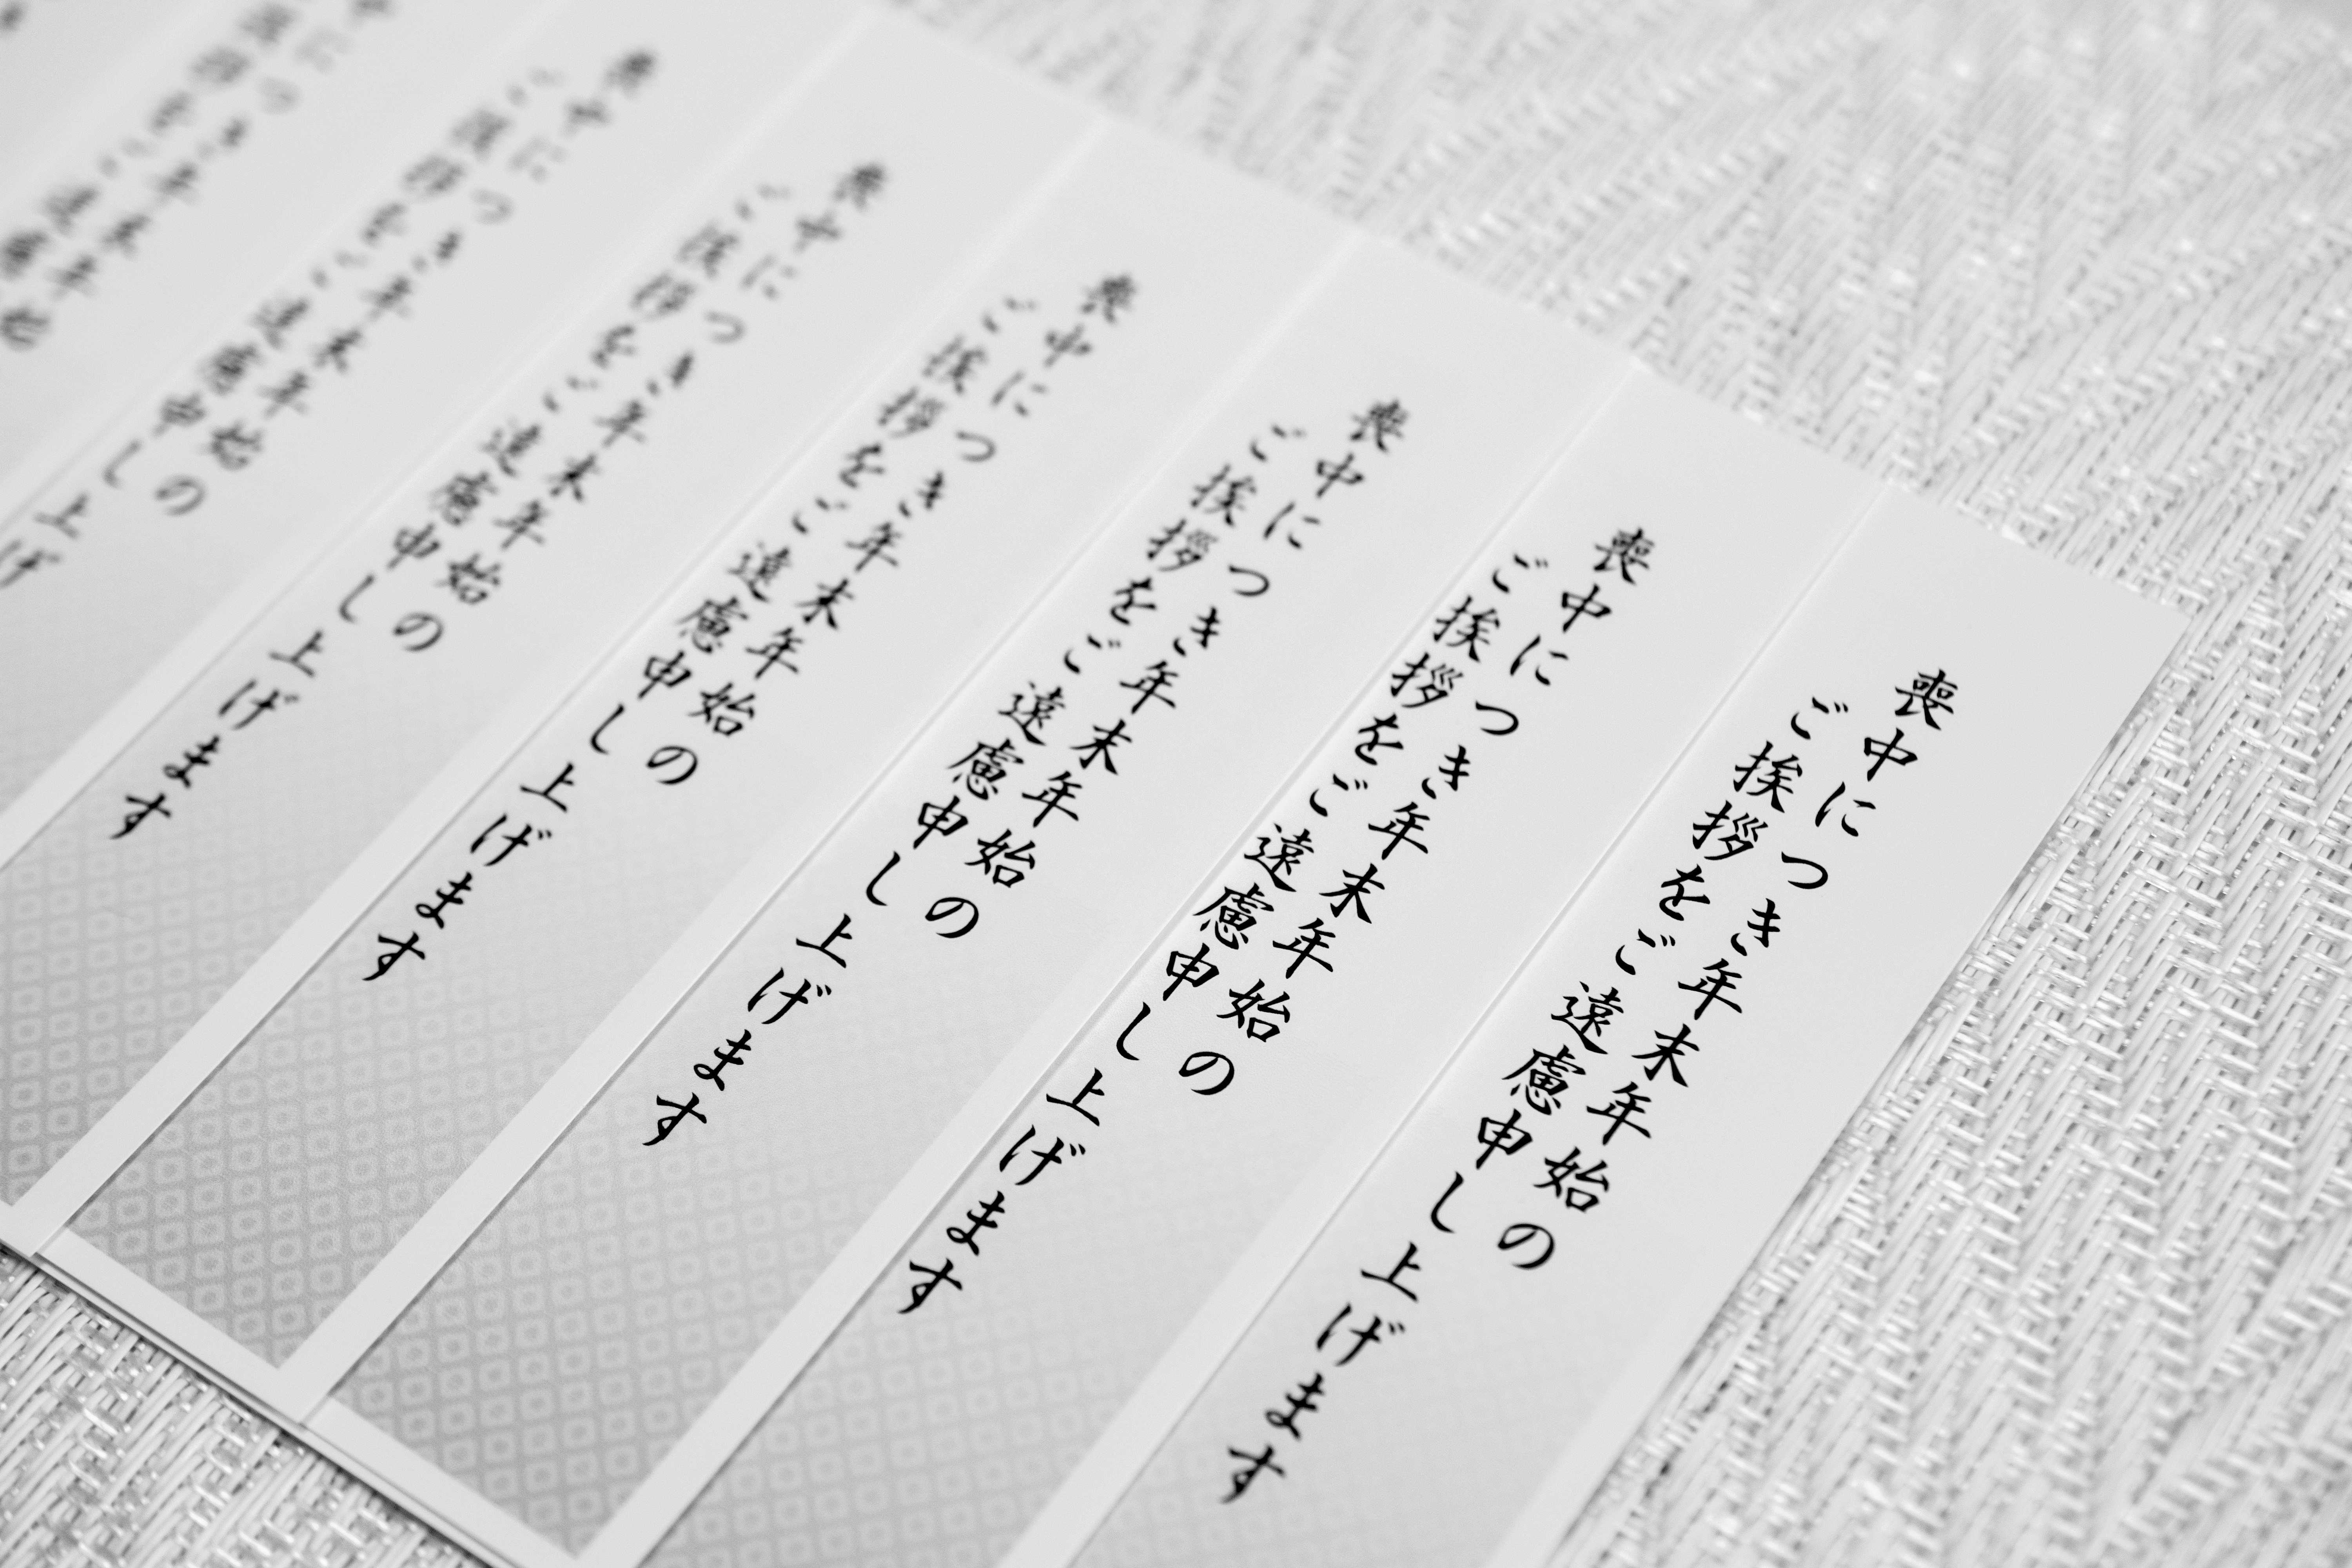 喪中につき年末年始の
ご挨拶をご遠慮申し上げます
喪中につき年末年始の
ご挨拶をご遠慮申し上げます
喪中につき年末年始の
ご挨拶をご遠慮申し上げます
喪中につき年末年始の
ご挨拶をご遠慮申し上げます
喪中につき年末年始の
ご挨拶をご遠慮申し上げます
喪中につき年末年始の
ご挨拶をご遠慮申し上げ
中につき年末年始